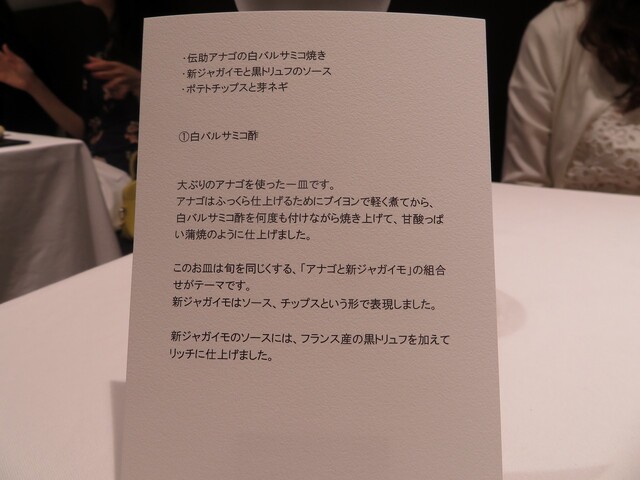 ・伝助アナゴの白バルサミコ焼き
・新ジャガイモと黒トリュフのソース
・ポテトチップスと芽ネギ
①白バルサミコ酢
大ぶりのアナゴを使った一皿です。
アナゴはふっくら仕上げるためにブイヨンで軽く煮てから、
白バルサミコ酢を何度も付けながら焼き上げて、甘酸っぱ
い蒲焼のように仕上げました。
このお皿は旬を同じくする、「アナゴと新ジャガイモ」の組合
せがテーマです。
新ジャガイモはソース、チップスという形で表現しました。
新ジャガイモのソースには、フランス産の黒トリュフを加えて
リッチに仕上げました。